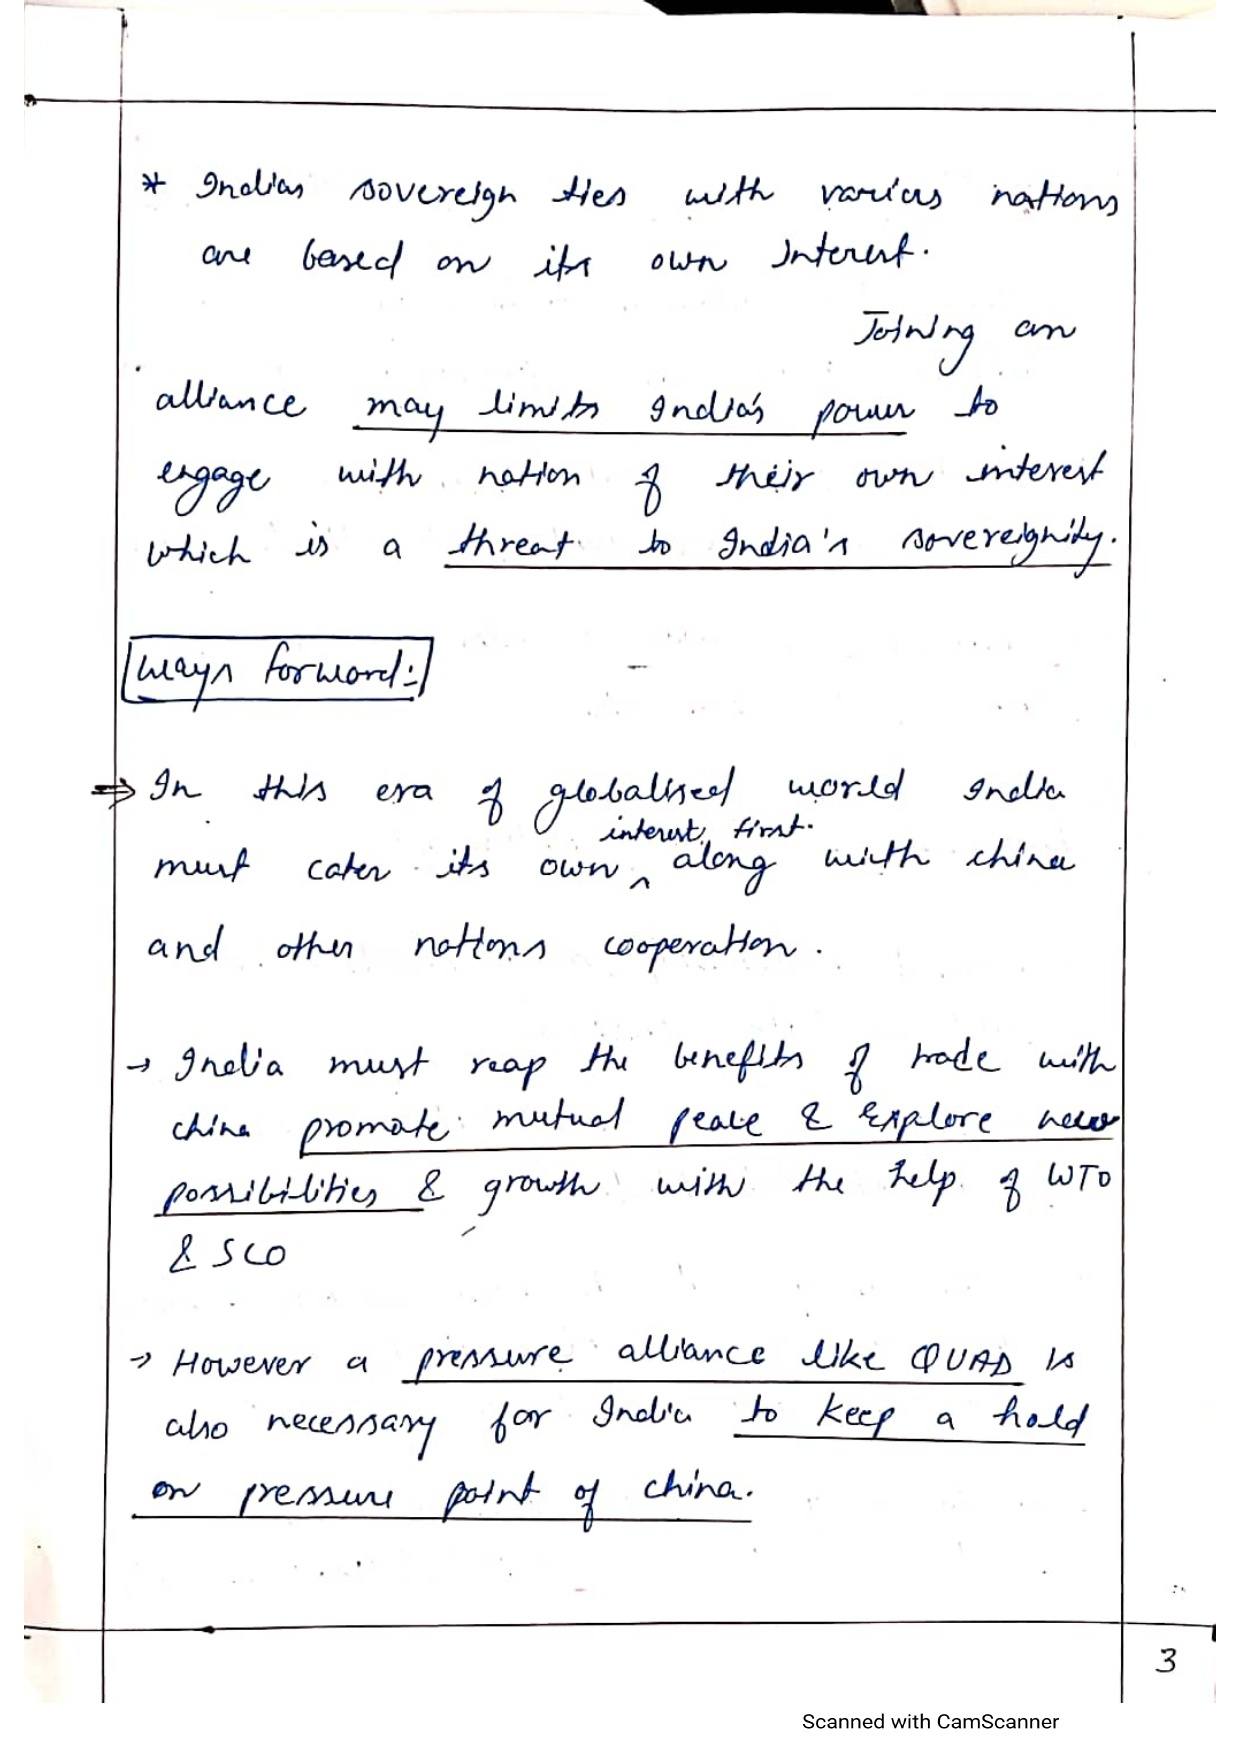 * Indias sovereign ties with various nations
are based on its own Interest.
Joining an
alliance may limits India's power to
engage with nation of their own interest
which is a threat to India's sovereignity.
Ways forward:-
⇒ In this era of globalised world India
interest first.
must cater its own ^ along with china
and other nations cooperation.
→ India must reap the benefits of trade with
china promote mutual peace & Explore new
possibilities & growth with the help of WTO
& SCO
→ However a pressure alliance like QUAD is
also necessary for India to keep a hold
on pressure point of china.
3
Scanned with CamScanner